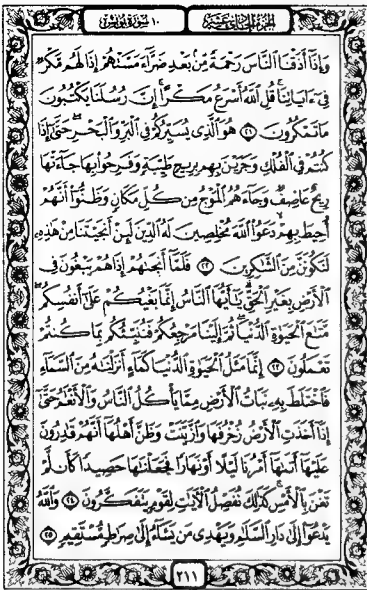 الجزء الحادي عشر
١٠ سورة يونس
وَإِذَآ أَذَقۡنَا ٱلنَّاسَ رَحۡمَةٗ مِّنۢ بَعۡدِ ضَرَّآءَ مَسَّتۡهُمۡ إِذَا لَهُم مَّكۡرٞ
فِيٓ ءَايَاتِنَاۚ قُلِ ٱللَّهُ أَسۡرَعُ مَكۡرًاۚ إِنَّ رُسُلَنَا يَكۡتُبُونَ
مَا تَمۡكُرُونَ ٢١ هُوَ ٱلَّذِي يُسَيِّرُكُمۡ فِي ٱلۡبَرِّ وَٱلۡبَحۡرِۖ حَتَّىٰٓ إِذَا
كُنتُمۡ فِي ٱلۡفُلۡكِ وَجَرَيۡنَ بِهِم بِرِيحٖ طَيِّبَةٖ وَفَرِحُواْ بِهَا جَآءَتۡهَا
رِيحٌ عَاصِفٞ وَجَآءَهُمُ ٱلۡمَوۡجُ مِن كُلِّ مَكَانٖ وَظَنُّوٓاْ أَنَّهُمۡ
أُحِيطَ بِهِمۡ دَعَوُاْ ٱللَّهَ مُخۡلِصِينَ لَهُ ٱلدِّينَ لَئِنۡ أَنجَيۡتَنَا مِنۡ هَٰذِهِۦ
لَنَكُونَنَّ مِنَ ٱلشَّٰكِرِينَ ٢٢ فَلَمَّآ أَنجَىٰهُمۡ إِذَا هُمۡ يَبۡغُونَ فِي
ٱلۡأَرۡضِ بِغَيۡرِ ٱلۡحَقِّۗ يَٰٓأَيُّهَا ٱلنَّاسُ إِنَّمَا بَغۡيُكُمۡ عَلَىٰٓ أَنفُسِكُمۖ
مَّتَٰعَ ٱلۡحَيَوٰةِ ٱلدُّنۡيَاۖ ثُمَّ إِلَيۡنَا مَرۡجِعُكُمۡ فَنُنَبِّئُكُم بِمَا كُنتُمۡ
تَعۡمَلُونَ ٢٣ إِنَّمَا مَثَلُ ٱلۡحَيَوٰةِ ٱلدُّنۡيَا كَمَآءٍ أَنزَلۡنَٰهُ مِنَ ٱلسَّمَآءِ
فَٱخۡتَلَطَ بِهِۦ نَبَاتُ ٱلۡأَرۡضِ مِمَّا يَأۡكُلُ ٱلنَّاسُ وَٱلۡأَنۡعَٰمُ حَتَّىٰٓ
إِذَآ أَخَذَتِ ٱلۡأَرۡضُ زُخۡرُفَهَا وَٱزَّيَّنَتۡ وَظَنَّ أَهۡلُهَآ أَنَّهُمۡ قَٰدِرُونَ
عَلَيۡهَآ أَتَىٰهَآ أَمۡرُنَا لَيۡلًا أَوۡ نَهَارٗا فَجَعَلۡنَٰهَا حَصِيدٗا كَأَن لَّمۡ
تَغۡنَ بِٱلۡأَمۡسِۚ كَذَٰلِكَ نُفَصِّلُ ٱلۡأٓيَٰتِ لِقَوۡمٖ يَتَفَكَّرُونَ ٢٤ وَٱللَّهُ
يَدۡعُوٓاْ إِلَىٰ دَارِ ٱلسَّلَٰمِ وَيَهۡدِي مَن يَشَآءُ إِلَىٰ صِرَٰطٖ مُّسۡتَقِيمٖ ٢٥
٢١١